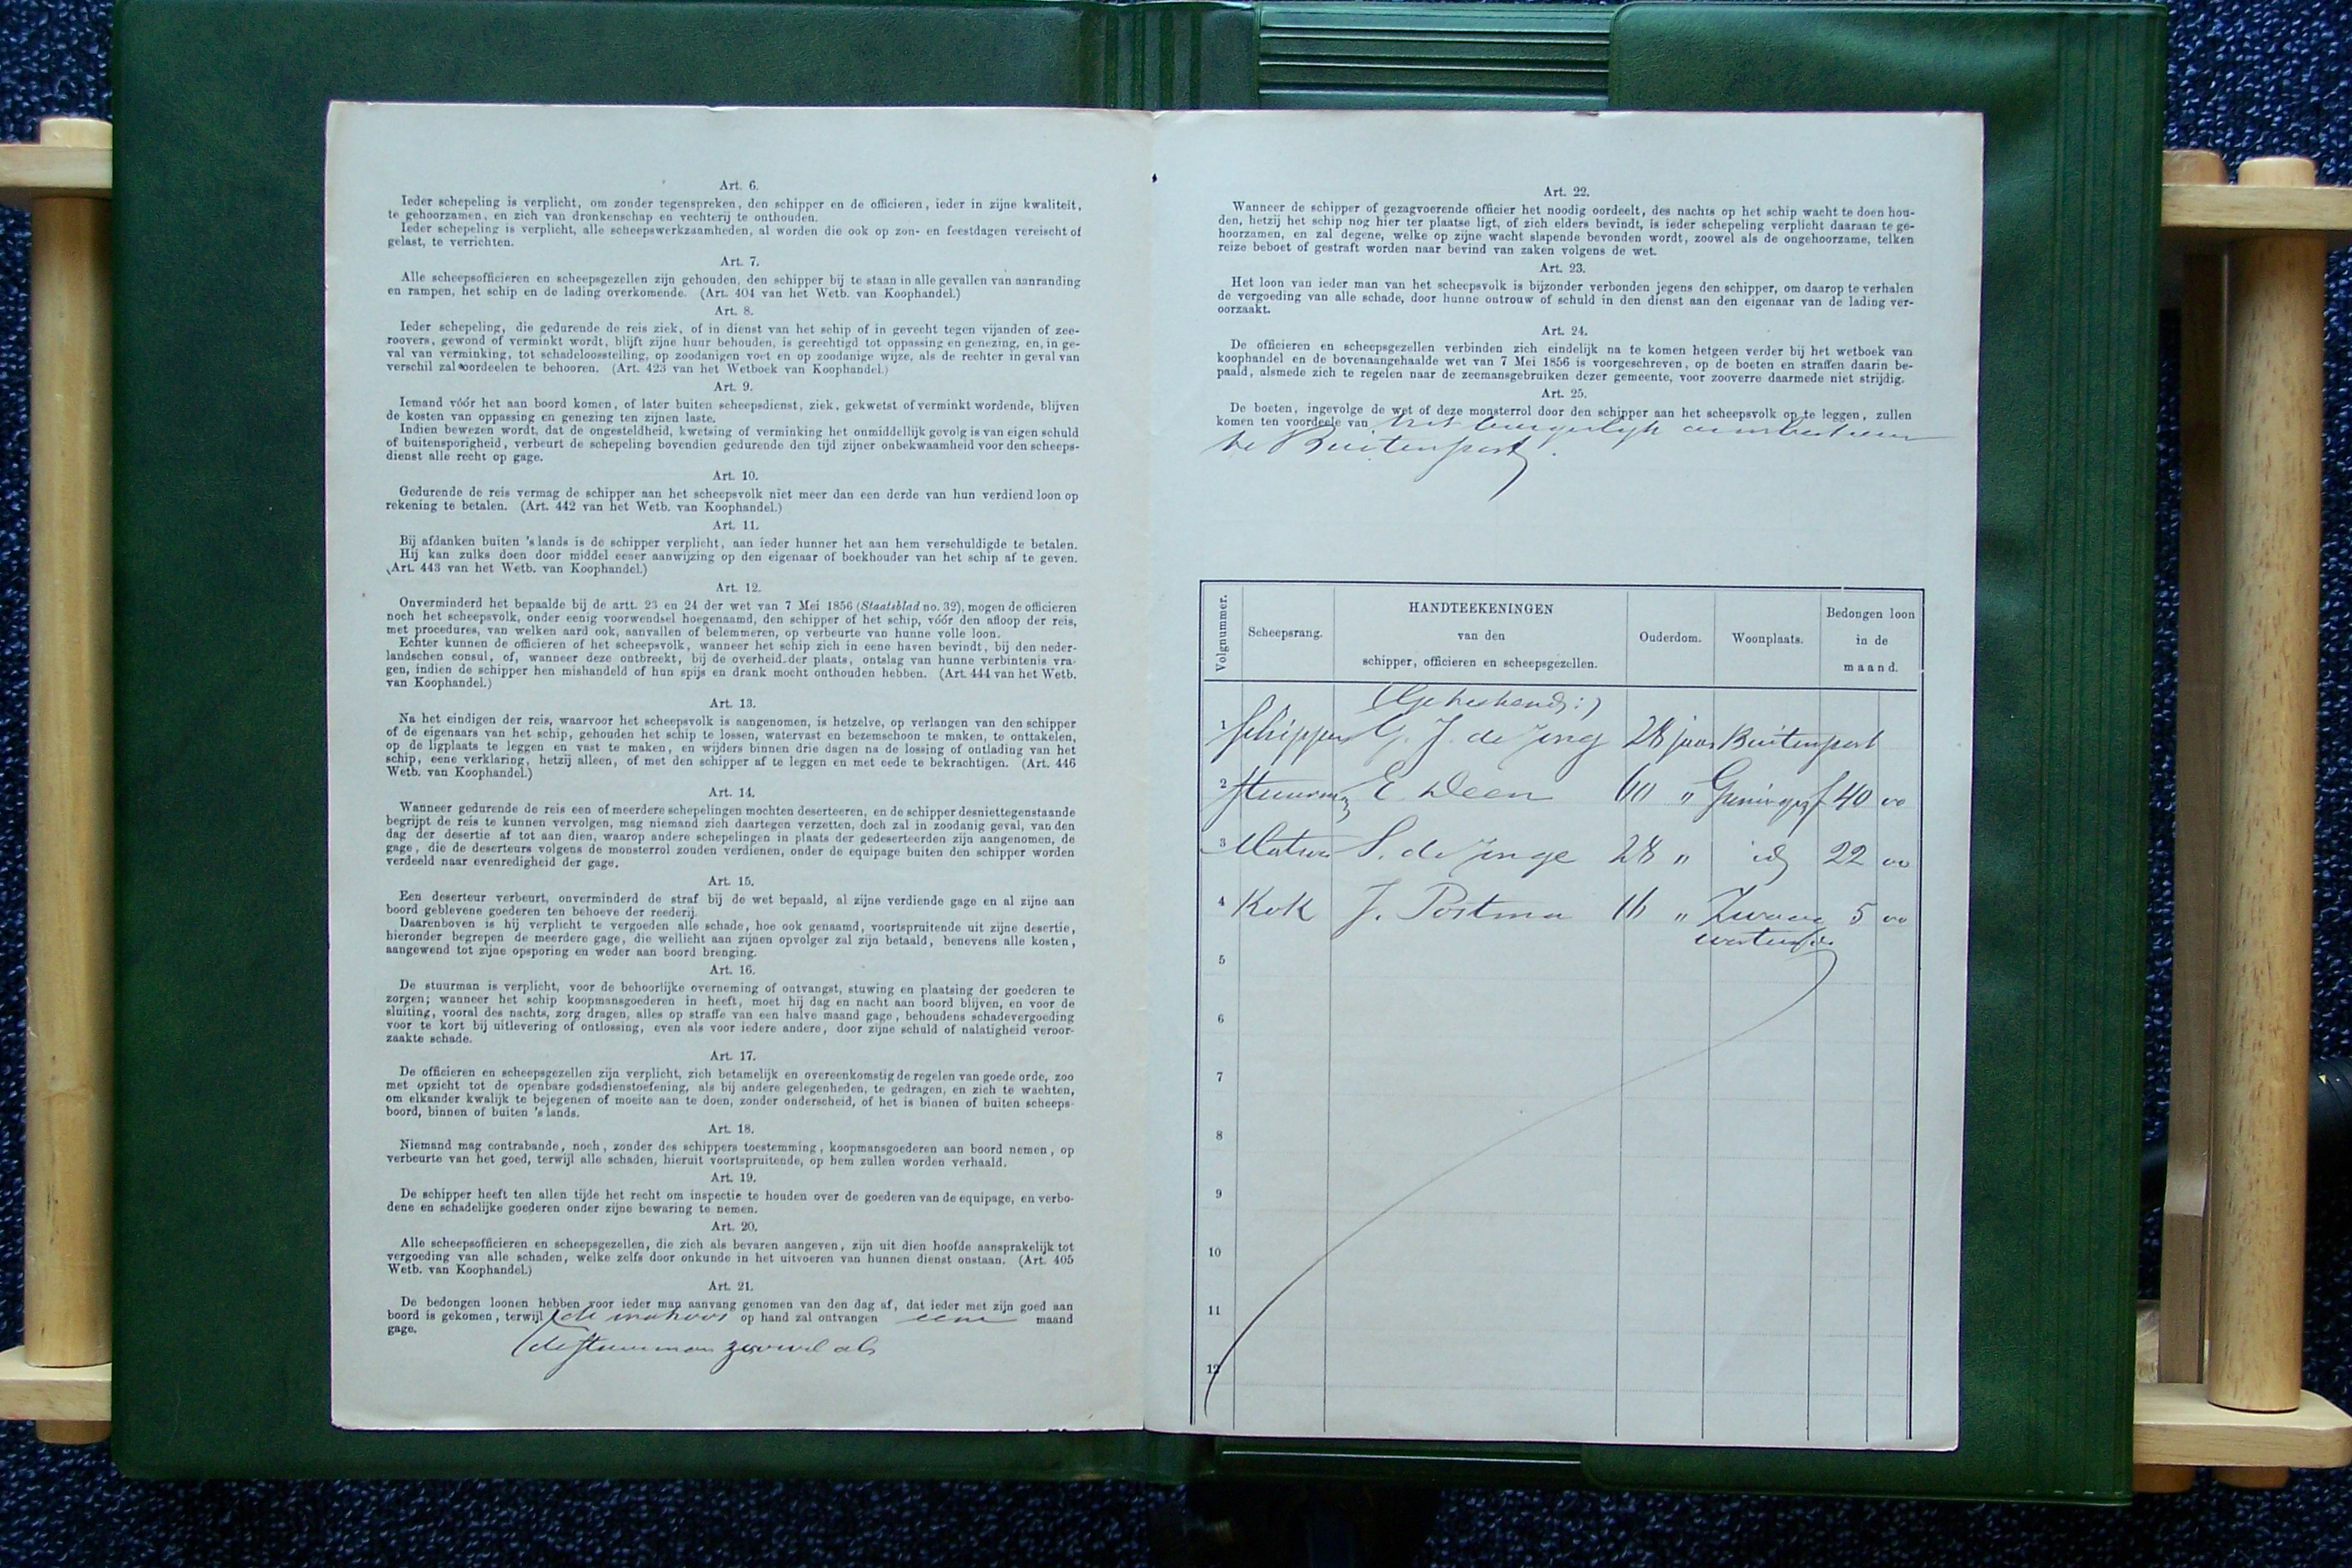 Art. 6.
Ieder schepeling is verplicht, om zonder tegenspreken, den schipper en de officieren, ieder in zijne kwaliteit,
te gehoorzamen, en zich van dronkenschap en vechterij te onthouden.
Ieder schepeling is verplicht, alle scheepswerkzaamheden, al worden die ook op zon- en feestdagen vereischt of
gelast, te verrichten.
Art. 7.
Alle scheepsofficieren en scheepsgezellen zijn gehouden, den schipper bij te staan in alle gevallen van aanranding
en rampen, het schip en de lading overkomende. (Art. 404 van het Wetb. van Koophandel.)
Art. 8.
Ieder schepeling, die gedurende de reis ziek, of in dienst van het schip of in gevecht tegen vijanden of zee-
roovers, gewond of verminkt wordt, blijft zijne huur behouden, is gerechtigd tot oppassing en genezing, en, in ge-
val van verminking, tot schadeloosstelling, op zoodanigen voet en op zoodanige wijze, als de rechter in geval van
verschil zal oordeelen te behooren. (Art. 423 van het Wetboek van Koophandel.)
Art. 9.
Iemand vóór het aan boord komen, of later buiten scheepsdienst, ziek, gekwetst of verminkt wordende, blijven
de kosten van oppassing en genezing ten zijnen laste.
Indien bewezen wordt, dat de ongesteldheid, kwetsing of verminking het onmiddellijk gevolg is van eigen schuld
of buitensporigheid, verbeurt de schepeling bovendien gedurende den tijd zijner onbekwaamheid voor den scheeps-
dienst alle recht op gage.
Art. 10.
Gedurende de reis vermag de schipper aan het scheepsvolk niet meer dan een derde van hun verdiend loon op
rekening te betalen. (Art. 442 van het Wetb. van Koophandel.)
Art. 11.
Bij afdanken buiten 's lands is de schipper verplicht, aan ieder hunner het aan hem verschuldigde te betalen.
Hij kan zulks doen door middel eener aanwijzing op den eigenaar of boekhouder van het schip af te geven.
(Art. 443 van het Wetb. van Koophandel.)
Art. 12.
Onverminderd het bepaalde bij de artt. 23 en 24 der wet van 7 Mei 1856 (Staatsblad no. 32), mogen de officieren
noch het scheepsvolk, onder eenig voorwendsel hoegenaamd, den schipper of het schip, vóór den afloop der reis,
met procedures, van welken aard ook, aanvallen of belemmeren, op verbeurte van hunne volle loon.
Echter kunnen de officieren of het scheepsvolk, wanneer het schip zich in eene haven bevindt, bij den neder-
landschen consul, of, wanneer deze ontbreekt, bij de overheid der plaats, ontslag van hunne verbintenis vra-
gen, indien de schipper hen mishandeld of hun spijs en drank mocht onthouden hebben. (Art. 444 van het Wetb.
van Koophandel.)
Art. 13.
Na het eindigen der reis, waarvoor het scheepsvolk is aangenomen, is hetzelve, op verlangen van den schipper
of de eigenaars van het schip, gehouden het schip te lossen, watervast en bezemschoon te maken, te onttakelen,
op de ligplaats te leggen en vast te maken, en wijders binnen drie dagen na de lossing of ontlading van het
schip, eene verklaring, hetzij alleen, of met den schipper af te leggen en met eede te bekrachtigen. (Art. 446
Wetb. van Koophandel.)
Art. 14.
Wanneer gedurende de reis een of meerdere schepelingen mochten deserteeren, en de schipper desniettegenstaande
begrijpt de reis te kunnen vervolgen, mag niemand zich daartegen verzetten, doch zal in zoodanig geval, van den
dag der desertie af tot aan dien, waarop andere schepelingen in plaats der gedeserteerden zijn aangenomen, de
gage, die de deserteurs volgens de monsterrol zouden verdienen, onder de equipage buiten den schipper worden
verdeeld naar evenredigheid der gage.
Art. 15.
Een deserteur verbeurt, onverminderd de straf bij de wet bepaald, al zijne verdiende gage en al zijne aan
boord geblevene goederen ten behoeve der reederij.
Daarenboven is hij verplicht te vergoeden alle schade, hoe ook genaamd, voortspruitende uit zijne desertie,
hieronder begrepen de meerdere gage, die wellicht aan zijnen opvolger zal zijn betaald, benevens alle kosten,
aangewend tot zijne opsporing en weder aan boord brenging.
Art. 16.
De stuurman is verplicht, voor de behoorlijke overneming of ontvangst, stuwing en plaatsing der goederen te
zorgen; wanneer het schip koopmansgoederen in heeft, moet hij dag en nacht aan boord blijven, en voor de
sluiting, vooral des nachts, zorg dragen, alles op straffe van een halve maand gage, behoudens schadevergoeding
voor te kort bij uitlevering of ontlossing, even als voor iedere andere, door zijne schuld of nalatigheid veroor-
zaakte schade.
Art. 17.
De officieren en scheepsgezellen zijn verplicht, zich betamelijk en overeenkomstig de regelen van goede orde, zoo
met opzicht tot de openbare godsdienstoefening, als bij andere gelegenheden, te gedragen, en zich te wachten,
om elkander kwalijk te bejegenen of moeite aan te doen, zonder onderscheid, of het is binnen of buiten scheeps-
boord, binnen of buiten 's lands.
Art. 18.
Niemand mag contrabande, noch, zonder des schippers toestemming, koopmansgoederen aan boord nemen, op
verbeurte van het goed, terwijl alle schaden, hieruit voortspruitende, op hem zullen worden verhaald.
Art. 19.
De schipper heeft ten allen tijde het recht om inspectie te houden over de goederen van de equipage, en verbo-
dene en schadelijke goederen onder zijne bewaring te nemen.
Art. 20.
Alle scheepsofficieren en scheepsgezellen, die zich als bevaren aangeven, zijn uit dien hoofde aansprakelijk tot
vergoeding van alle schaden, welke zelfs door onkunde in het uitvoeren van hunnen dienst onstaan. (Art. 405
Wetb. van Koophandel.)
Art. 21.
De bedongen loonen hebben voor ieder man aanvang genomen van den dag af, dat ieder met zijn goed aan
boord is gekomen, terwijl de matroos op hand zal ontvangen eene maand
gage.
de stuurman zoowel als
Art. 22.
Wanneer de schipper of gezagvoerende officier het noodig oordeelt, des nachts op het schip wacht te doen hou-
den, hetzij het schip nog hier ter plaatse ligt, of zich elders bevindt, is ieder schepeling verplicht daaraan te ge-
hoorzamen, en zal degene, welke op zijne wacht slapende bevonden wordt, zoowel als de ongehoorzame, telken
reize beboet of gestraft worden naar bevind van zaken volgens de wet.
Art. 23.
Het loon van ieder man van het scheepsvolk is bijzonder verbonden jegens den schipper, om daarop te verhalen
de vergoeding van alle schade, door hunne ontrouw of schuld in den dienst aan den eigenaar van de lading ver-
oorzaakt.
Art. 24.
De officieren en scheepsgezellen verbinden zich eindelijk na te komen hetgeen verder bij het wetboek van
koophandel en de bovenaangehaalde wet van 7 Mei 1856 is voorgeschreven, op de boeten en straffen daarin be-
paald, alsmede zich te regelen naar de zeemansgebruiken dezer gemeente, voor zooverre daarmede niet strijdig.
Art. 25.
De boeten, ingevolge de wet of deze monsterrol door den schipper aan het scheepsvolk op te leggen, zullen
komen ten voordeele van het burgerlijk armbestuur
te Buitenpost.
Volgnummer. Scheepsrang. HANDTEEKENINGEN van den schipper, officieren en scheepsgezellen. Ouderdom. Woonplaats. Bedongen loon in de maand.
(Geteekend:)
1 Schipper G. J. de Jong 28 jaar Buitenpost
2 Stuurman E. Deen 60 " Groningen f 40 00
3 Matroos S. de Jonge 28 " id 22 00
4 Kok J. Postma 16 " 5 00
5
6
7
8
9
10
11
12